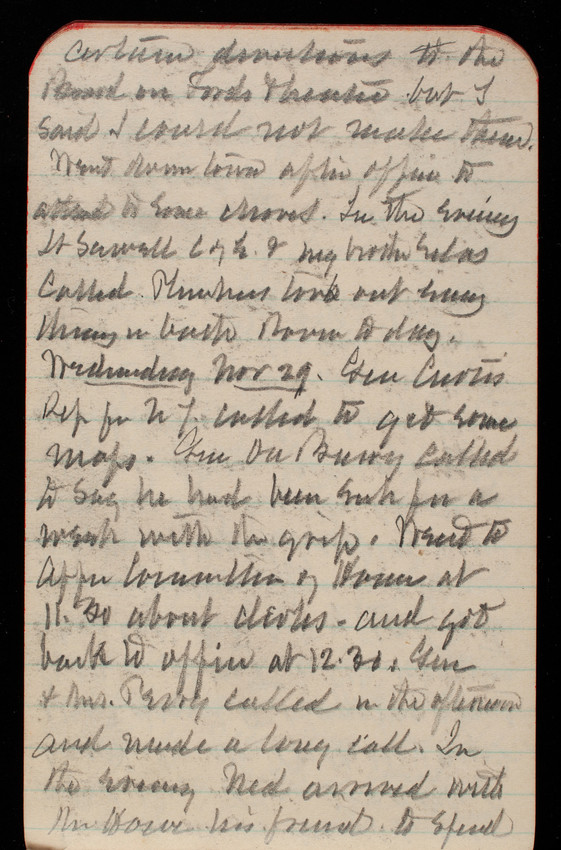 certain directions to the
Board on Fords Theatre but I
said I could not make them.
Went down town after office to
attend to some chores. In the evening
Lt Sewell C of E. & my brother Silas
called. Plumbers took out every
thing in bath room to day.
Wednesday Nov 29. Gen Curtis
Rep fr N Y. called to get some
maps. Gen Du Barry called
to say he had been sick for a
week with the grip. Went to
Appn Committee of House at
11.30 about clerks - and got
back to office at 12.30. Gen
& Mrs. Perry called in the afternoon
and made a long call. In
the evening Ned arrived with
Mr Howe his friend to spend